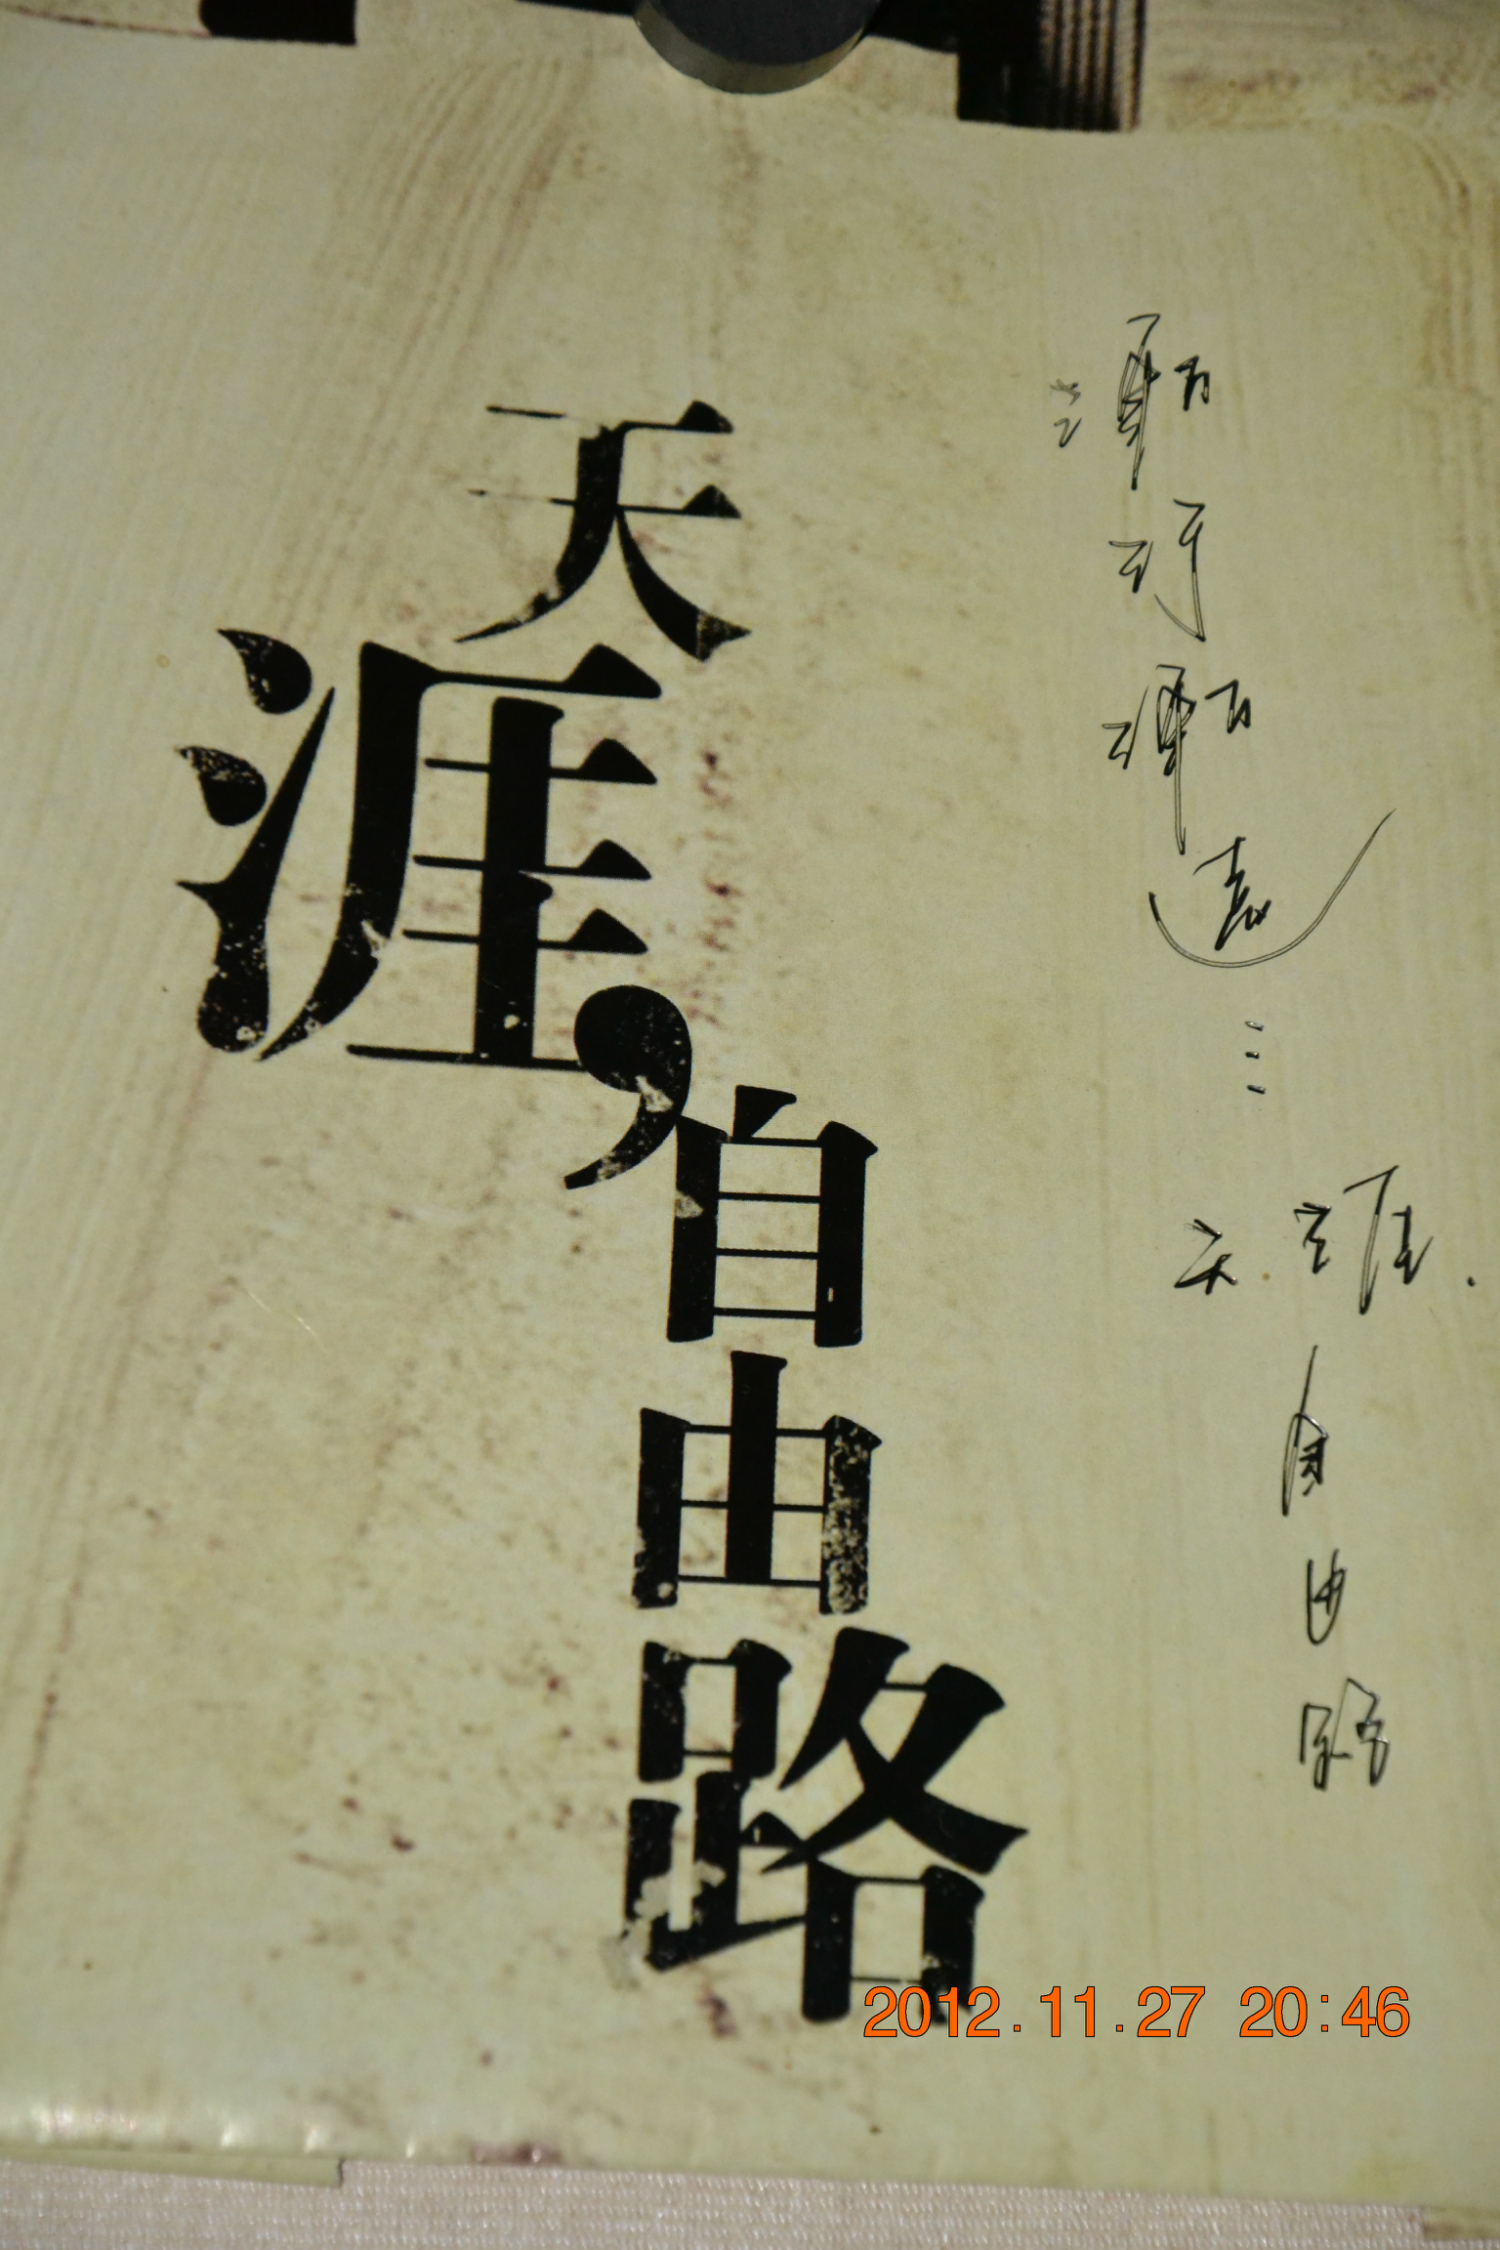 天涯,自由路
渐行渐远…
天涯.
自由路
2012.11.27 20:46